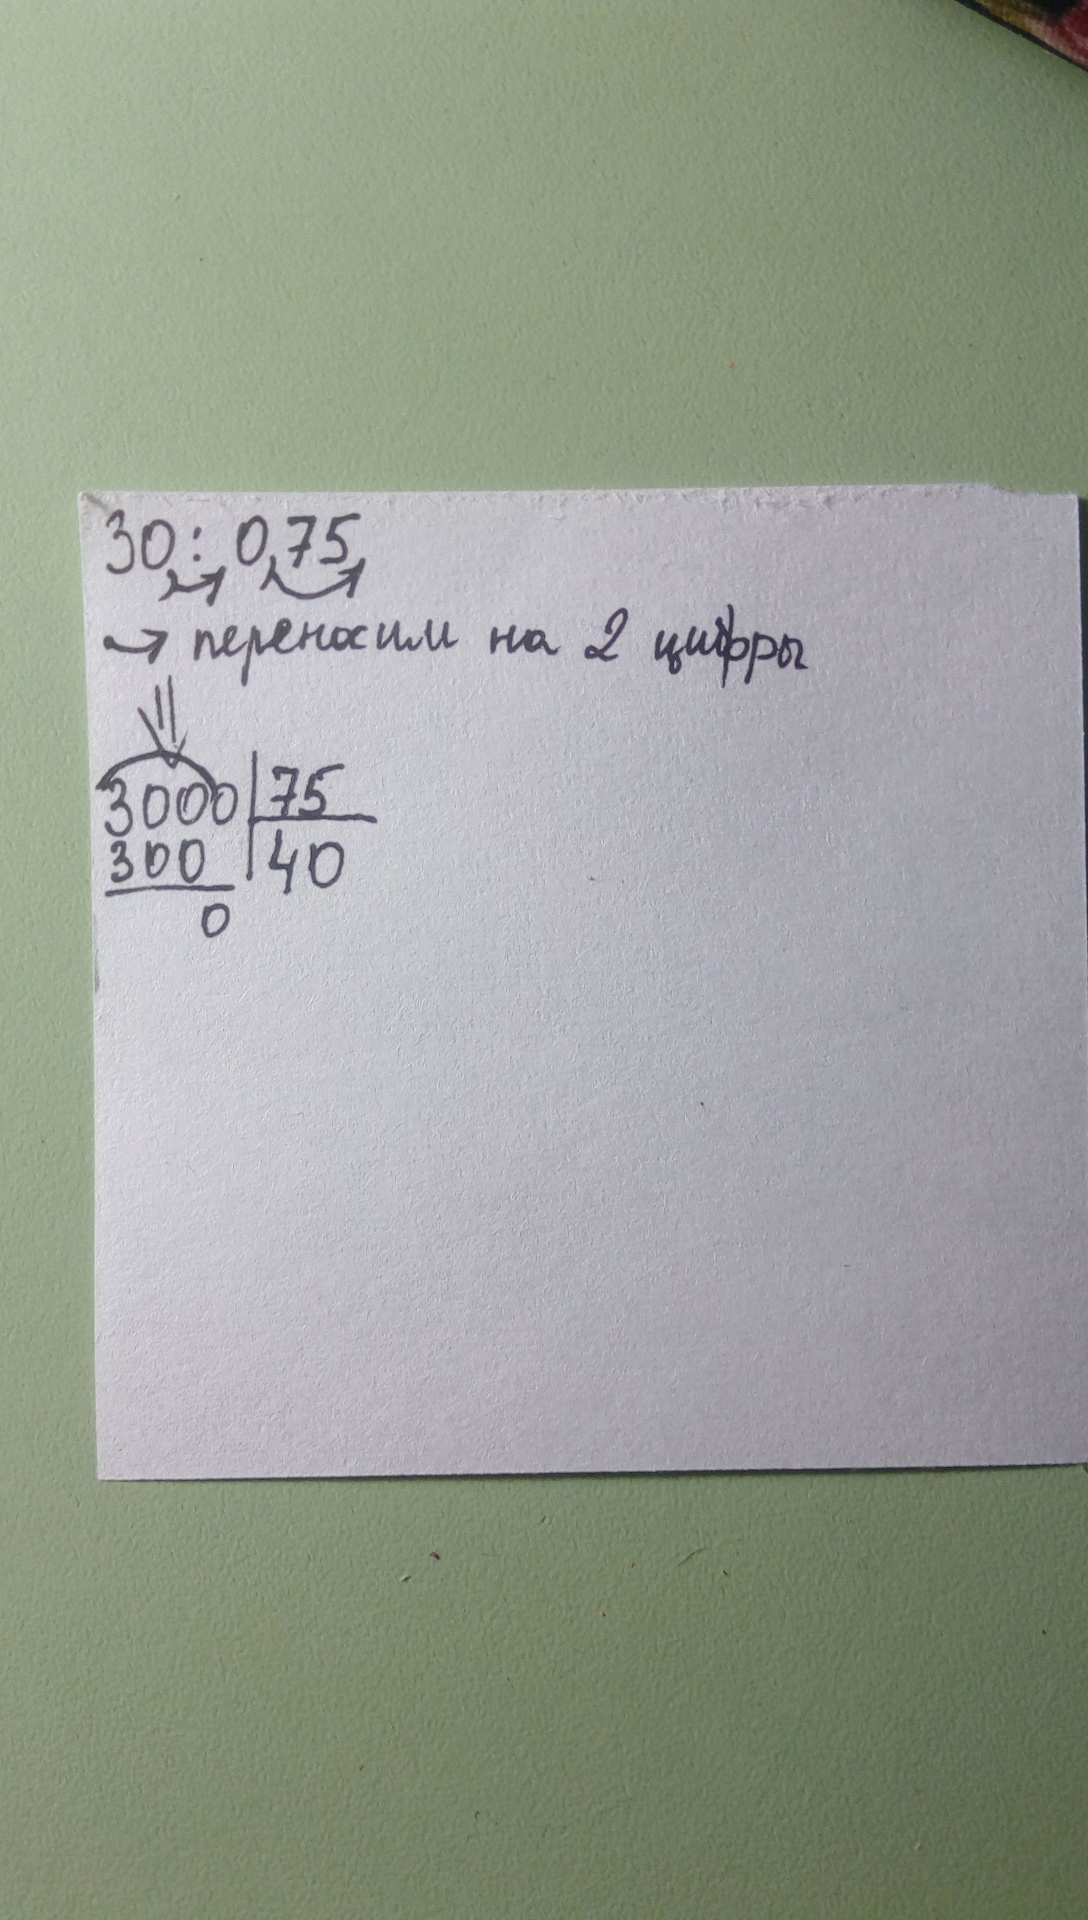 30 : 0,75
→ переносим на 2 цифры
3000 | 75
300 | 40
0